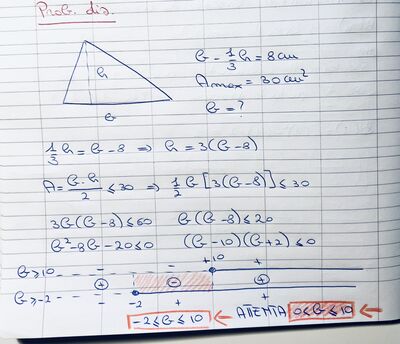 Prob. dis.
h
b
b - 1/3 h = 8 cm
A max = 30 cm²
b = ?
1/3 h = b - 8 ⇒ h = 3(b - 8)
A = b·h/2 ≤ 30 ⇒ 1/2 b [3(b - 8)] ≤ 30
3b(b - 8) ≤ 60 b(b - 8) ≤ 20
b² - 8b - 20 ≤ 0 (b - 10)(b + 2) ≤ 0
+10
b ≥ 10 - - +
+ - +
b ≥ -2 - -2 + +
-2 ≤ b ≤ 10 ATTENTA 0 ≤ b ≤ 10